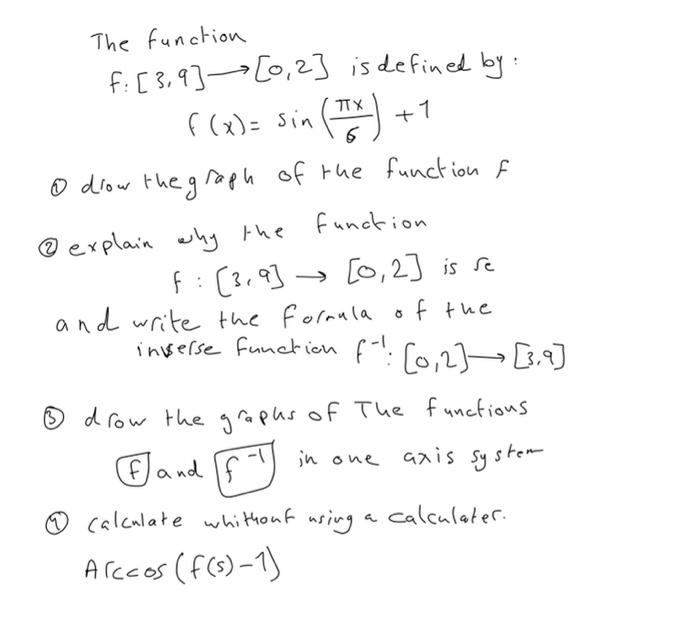 The function
f: [3,9] → [0,2] is defined by:
f(x) = sin (πx/6) + 1
① drow the graph of the function f
② explain why the function
f : [3,9] → [0,2] is re
and write the formula of the
inverse function f⁻¹: [0,2] → [3,9]
③ drow the graphs of The functions
f and f⁻¹ in one axis system
④ calculate whithout using a calculater.
Arccos (f(5)-1)